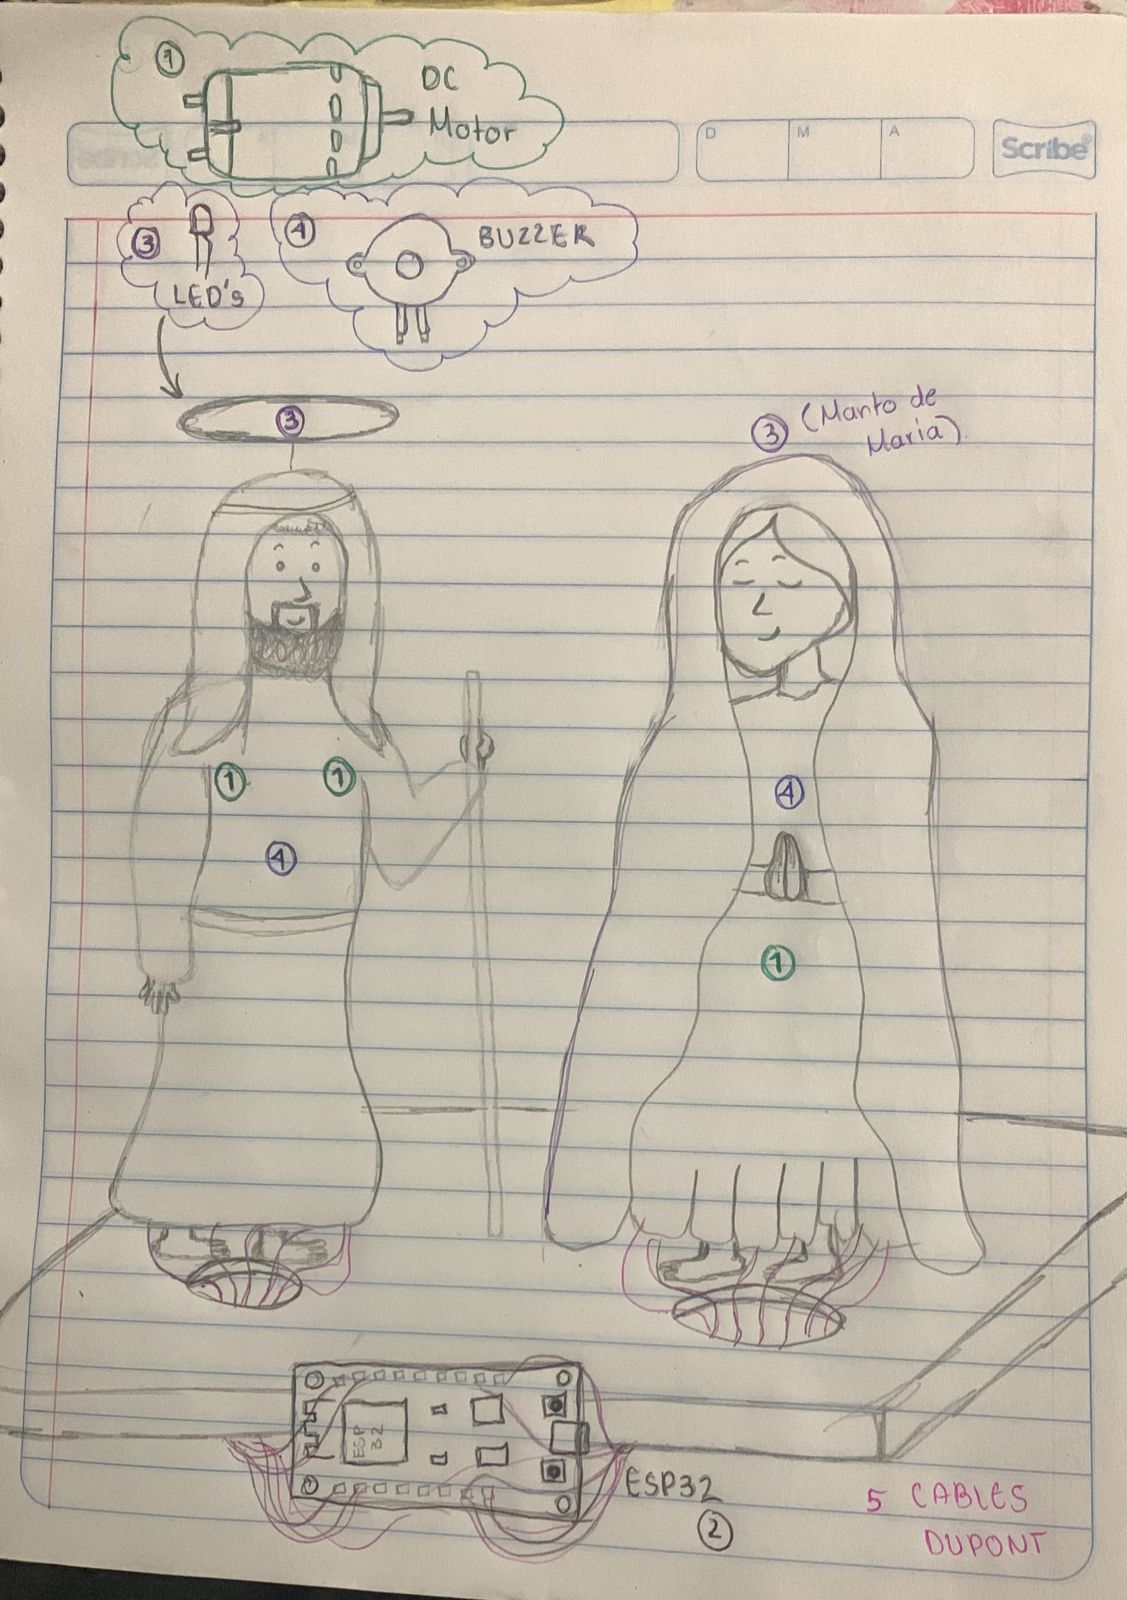 1
DC
Motor
D
M
A
Scribe
3
LED's
4
BUZZER
3
3 (Manto de
Maria)
1
1
4
4
1
ESP
32
ESP32
2
5 CABLES
DUPONT